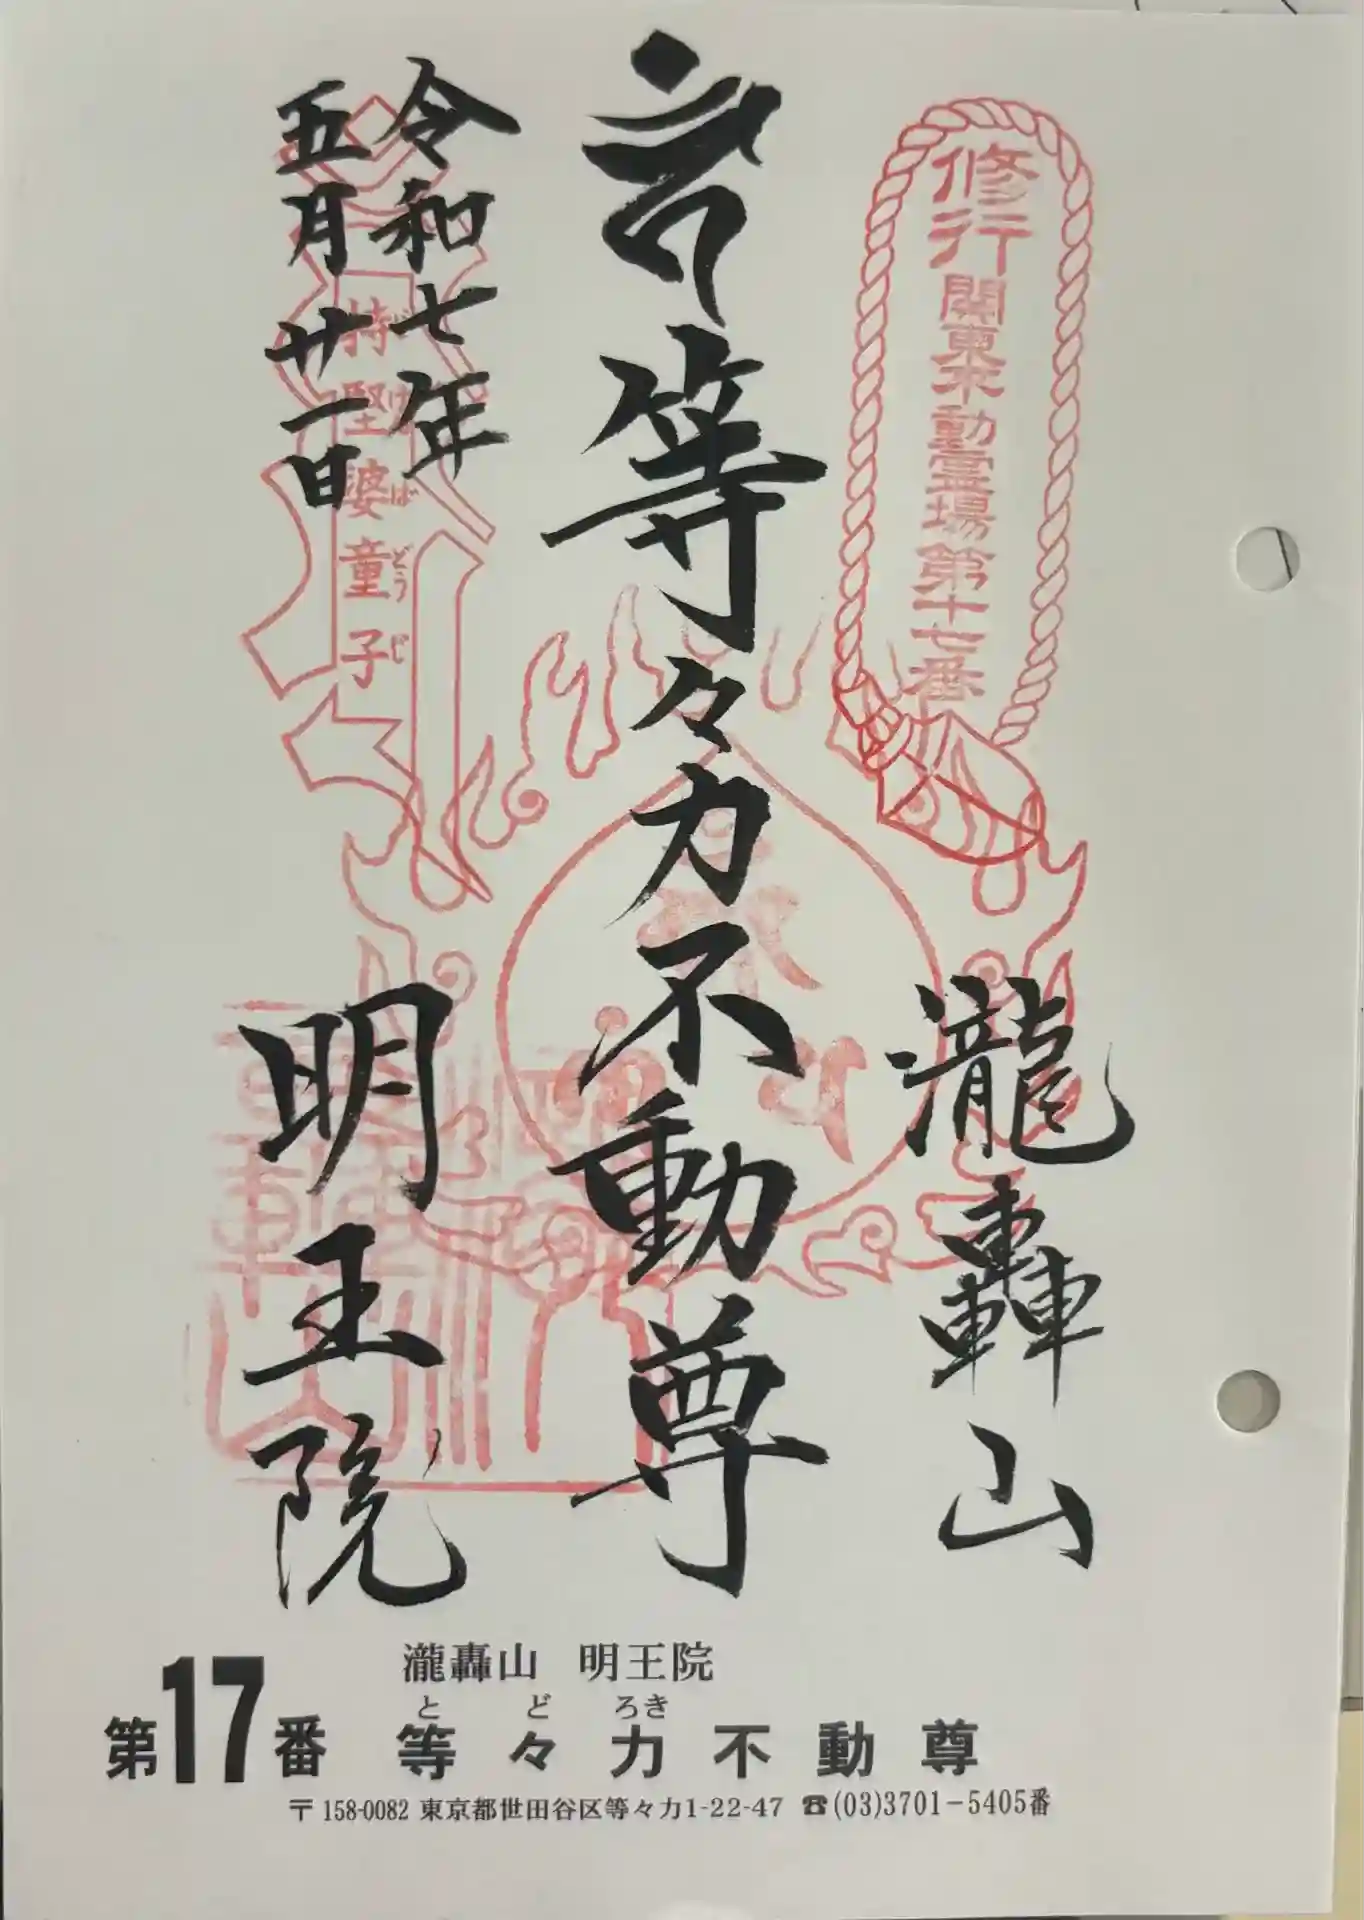 修行 関東不動霊場第十七番
瀧轟山
等々力不動尊
令和七年
五月廿一日
持堅婆童子
じけんばどうじ
明王院
瀧轟山 明王院
とどろき
第17番 等々力不動尊
〒158-0082 東京都世田谷区等々力1-22-47 ☎(03)3701-5405番